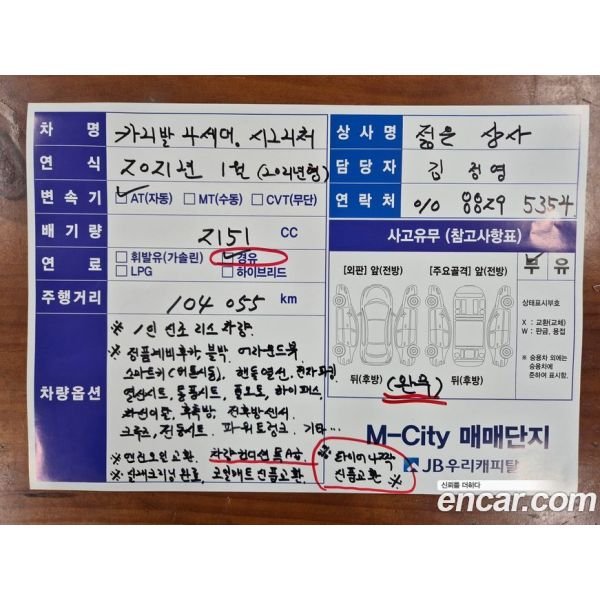 차 명 카니발 4세대, 시그니처
연 식 2021年 1월 (2021년형)
변속기 AT(자동) MT(수동) CVT(무단)
배기량 2151 CC
연 료 휘발유(가솔린) 경유
LPG 하이브리드
주행거리 104 055 km
차량옵션
※ 1인 신조 리스 차량.
※ 정품네비후카 블박, 어라운드뷰
스마트키(원격시동), 핸들열선, 전자파킹
열선시트, 통풍시트, 풀오토, 하이패스,
차선이탈, 후측방, 전후방센서
크루즈, 전동시트, 파워트렁크, 기타…
※ 엔진오일교환, 차량컨디션 특A급
※ 실내크리닝 완료, 코일매트 신품교환
※ 타이어 4짝
신품교환 ※
상사명 젊은 상사
담당자 김 정영
연락처 010 8829 5354
사고유무 (참고사항표)
[외판] 앞(전방) [주요골격] 앞(전방)
무 유
상태표시부호
X : 교환(교체)
W : 판금, 용접
※ 승용차 외에는
승용차에
준하여 표시함.
뒤(후방) 뒤(후방)
(완무)
M-City 매매단지
JB우리캐피탈
신뢰를 더하다
encar.com